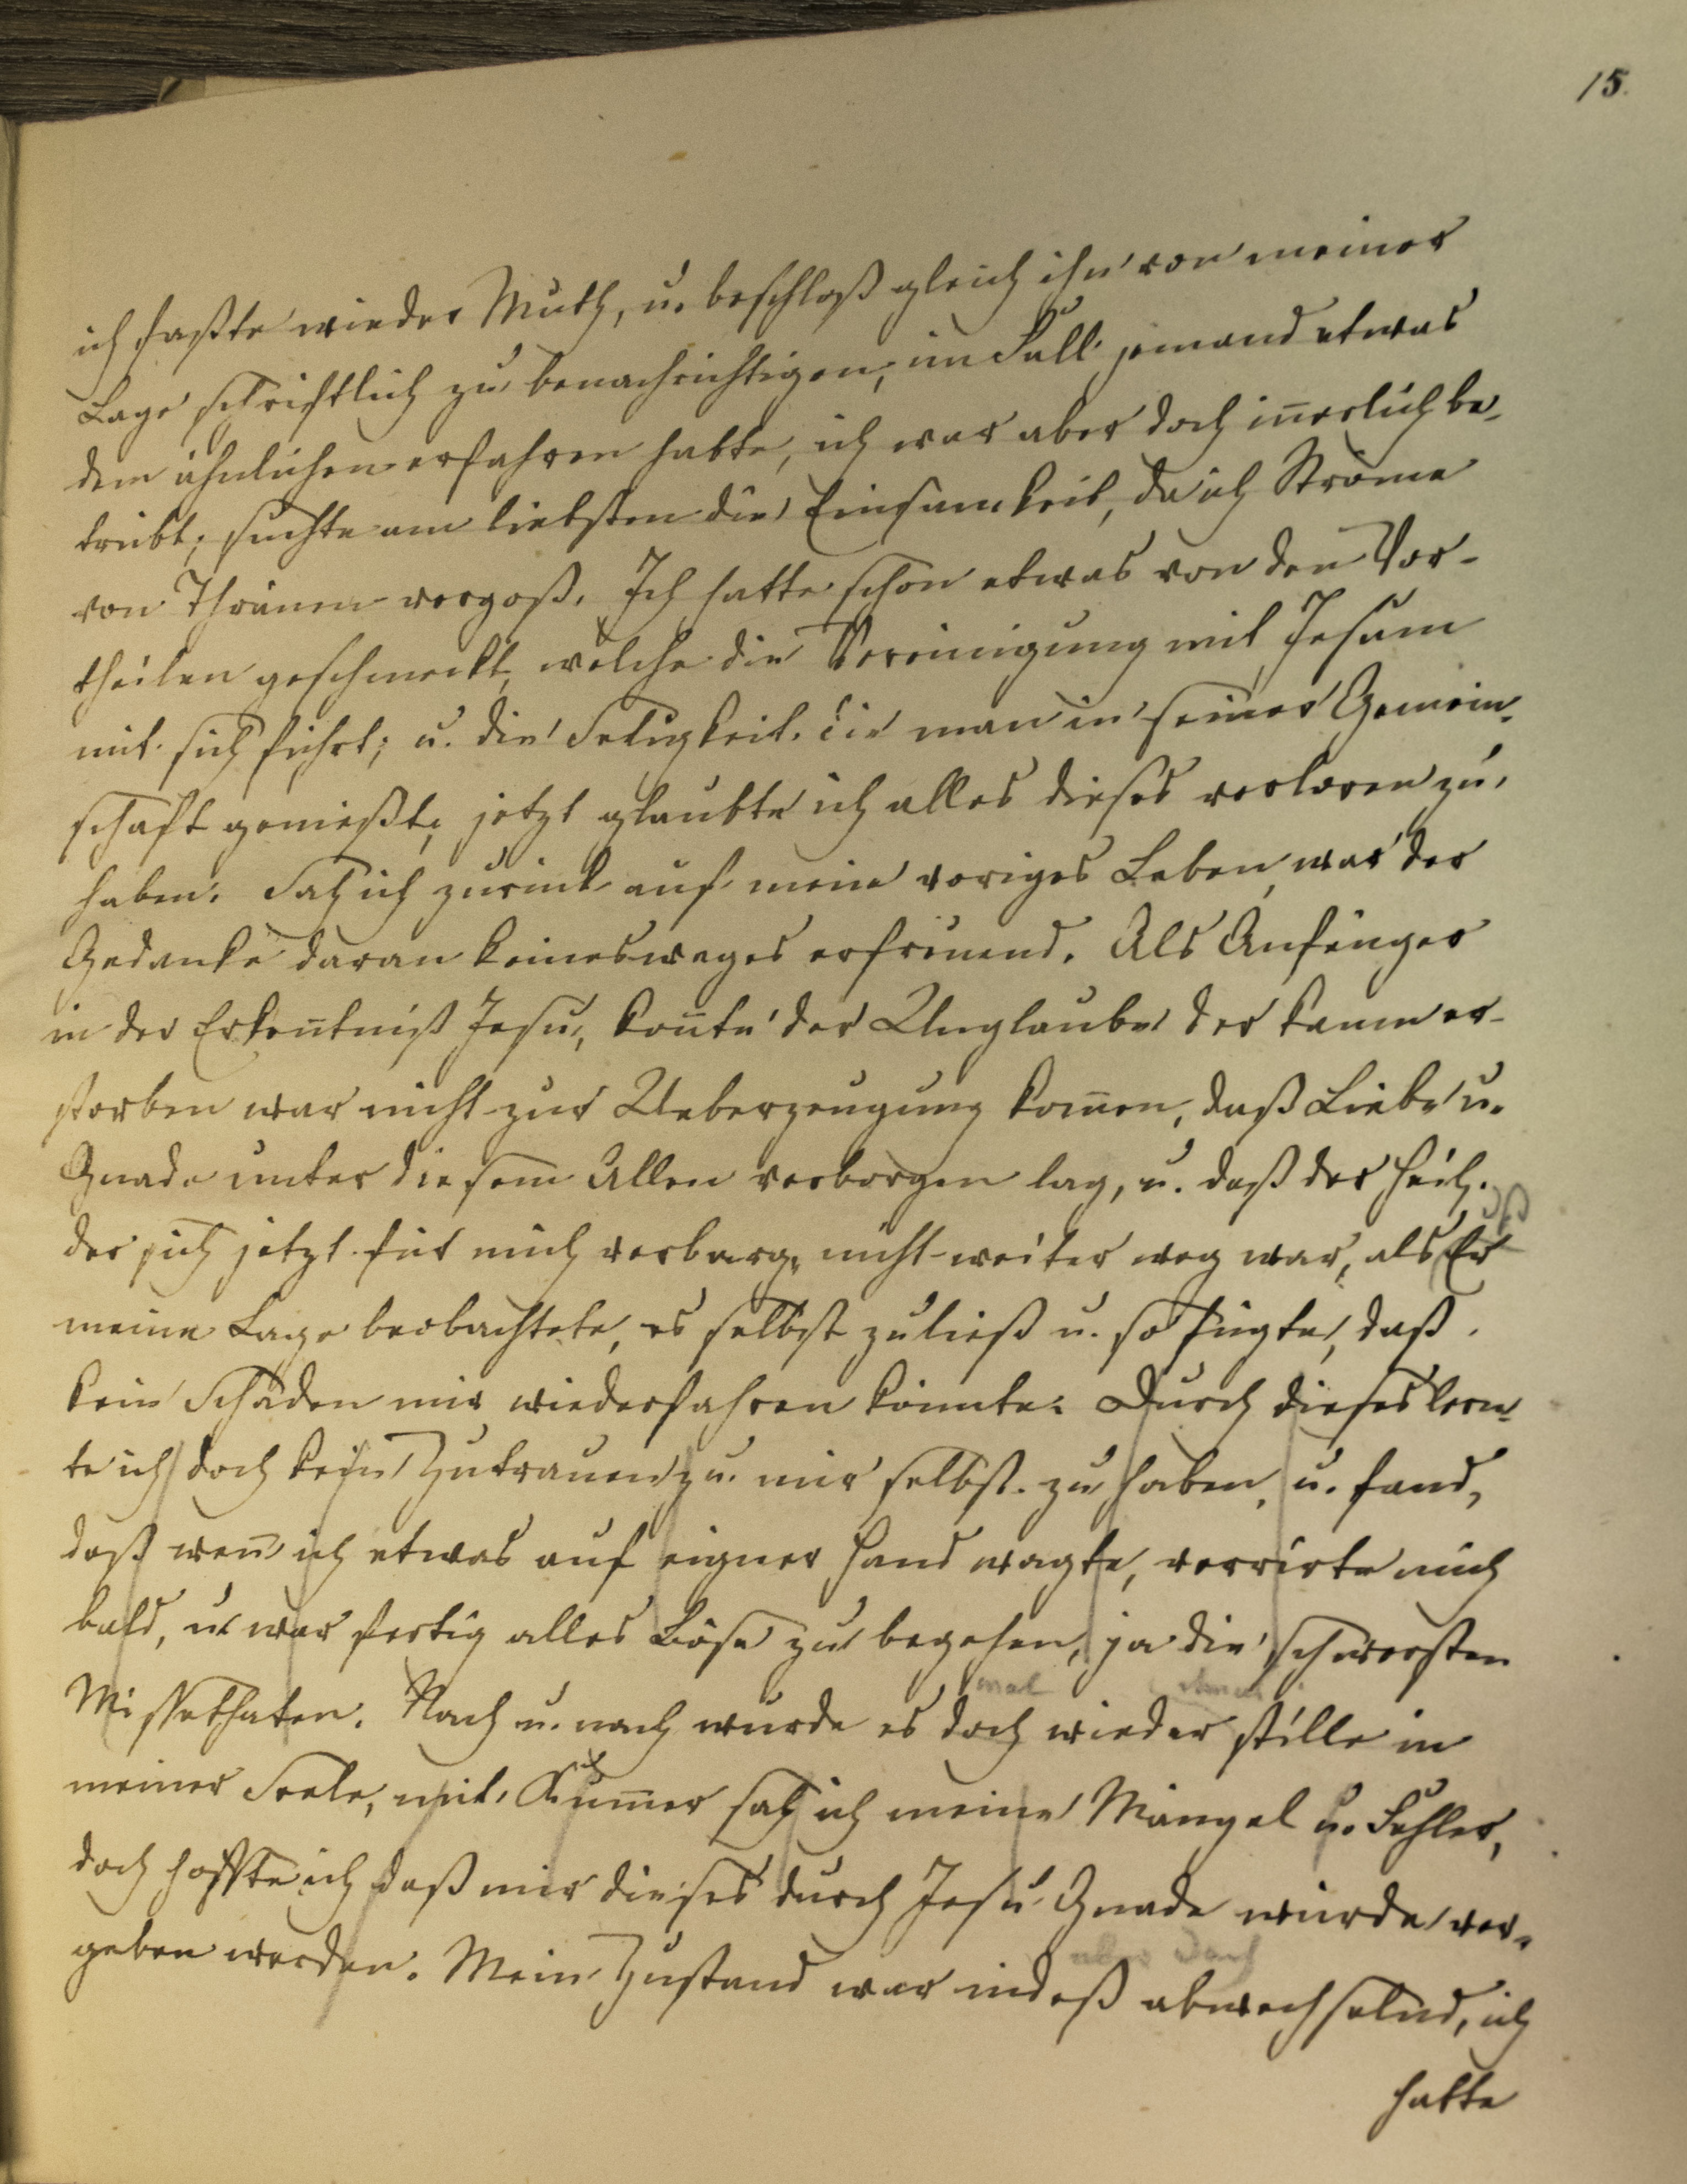 15.
ich faßte wieder Muth, u. beschloß gleich ihn von meiner
Lage schriftlich zu benachrichtigen, im Fall jemand etwas
dem ähnlichen erfahren hatte, ich war aber doch in̅erlich be-
trübt; suchte am liebsten die Einsamkeit, da ich Ströme
von Thränen vergoß. Ich hatte schon etwas von den Vor-
theilen geschmeckt, welche die Vereinigung mit Jesum
mit sich führt; u. die Seligkeit die man in seiner Gemein-
schaft genießt, jetzt glaubte ich alles dieses verloren zu
haben. Sah ich zurück auf mein voriges Leben, war der
Gedanke daran keinesweges erfreuend. Als Anfänger
in der Erken̅tniß Jesu, kon̅te der Unglaube der kaum er-
storben war nicht zur Ueberzeugung kom̅en, daß Liebe u.
Gnade unter diesem Allen verborgen lag, u. daß der Heil.
der sich jetzt für mich verbarg, nicht weiter weg war, als Er
meine Lage beobachtete, es selbst zuließ u. so fügte, daß
kein Schaden mir wiederfahren könnte. Durch dieses lern-
te ich doch kein Zutrauen zu mir selbst zu haben, u. fand,
daß wen̅ ich etwas auf eigner Hand wagte, verrirte mich
bald, u. war fertig alles Böse zu begehen, ja die schwersten
Missethaten. Nach u. nach wurde es doch wieder stille in
mal
meiner Seele, mit Kum̅er sah ich meine Mängel u. Fehler,
doch hoffte ich daß mir dieses durch Jesu Gnade würde ver-
geben werden. Mein Zustand war indeß abwechselnd, ich
hatte